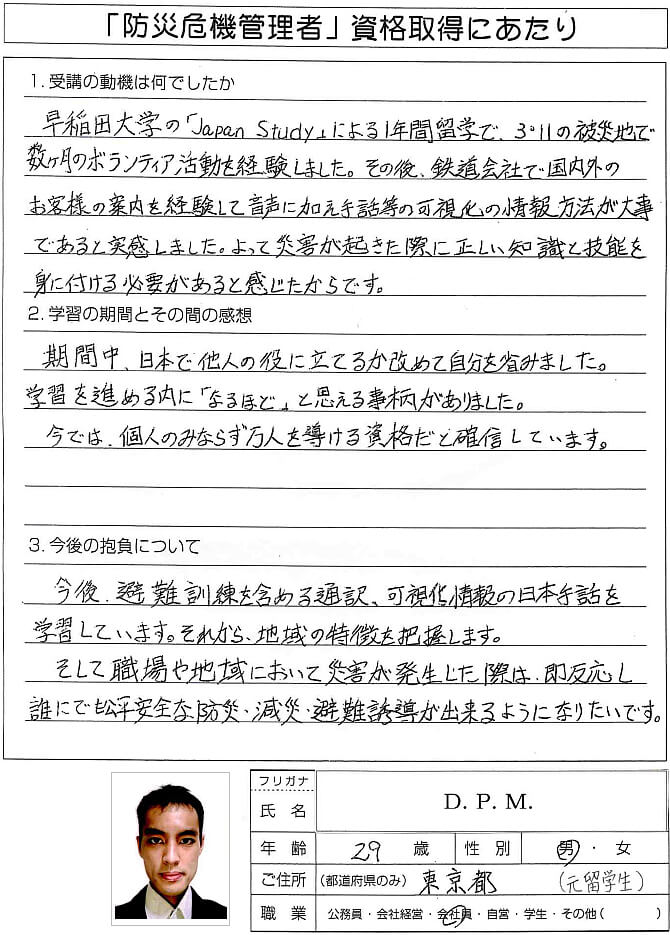 「防災危機管理者」資格取得にあたり
1.受講の動機は何でしたか
早稲田大学の「Japan Study」による1年間留学で、3・11の被災地で
数ヶ月のボランティア活動を経験しました。その後、鉄道会社で国内外の
お客様の案内を経験して音声に加え手話等の可視化の情報方法が大事
であると実感しました。よって災害が起きた際に正しい知識と技能を
身に付ける必要があると感じたからです。
2.学習の期間とその間の感想
期間中、日本で他人の役に立てるか改めて自分を省みました。
学習を進める内に「なるほど」と思える事柄がありました。
今では、個人のみならず万人を導ける資格だと確信しています。
3.今後の抱負について
今後、避難訓練を含める通訳、可視化情報の日本手話を
学習しています。それから、地域の特徴を把握します。
そして職場や地域において災害が発生した際は、即反応し
誰にでも公平安全な防災・減災・避難誘導が出来るようになりたいです。
フリガナ
氏名 D. P. M.
年齢 29 歳 性別 男・女
ご住所 (都道府県のみ) 東京都 (元留学生)
職業 公務員・会社経営・会社員・自営・学生・その他( )